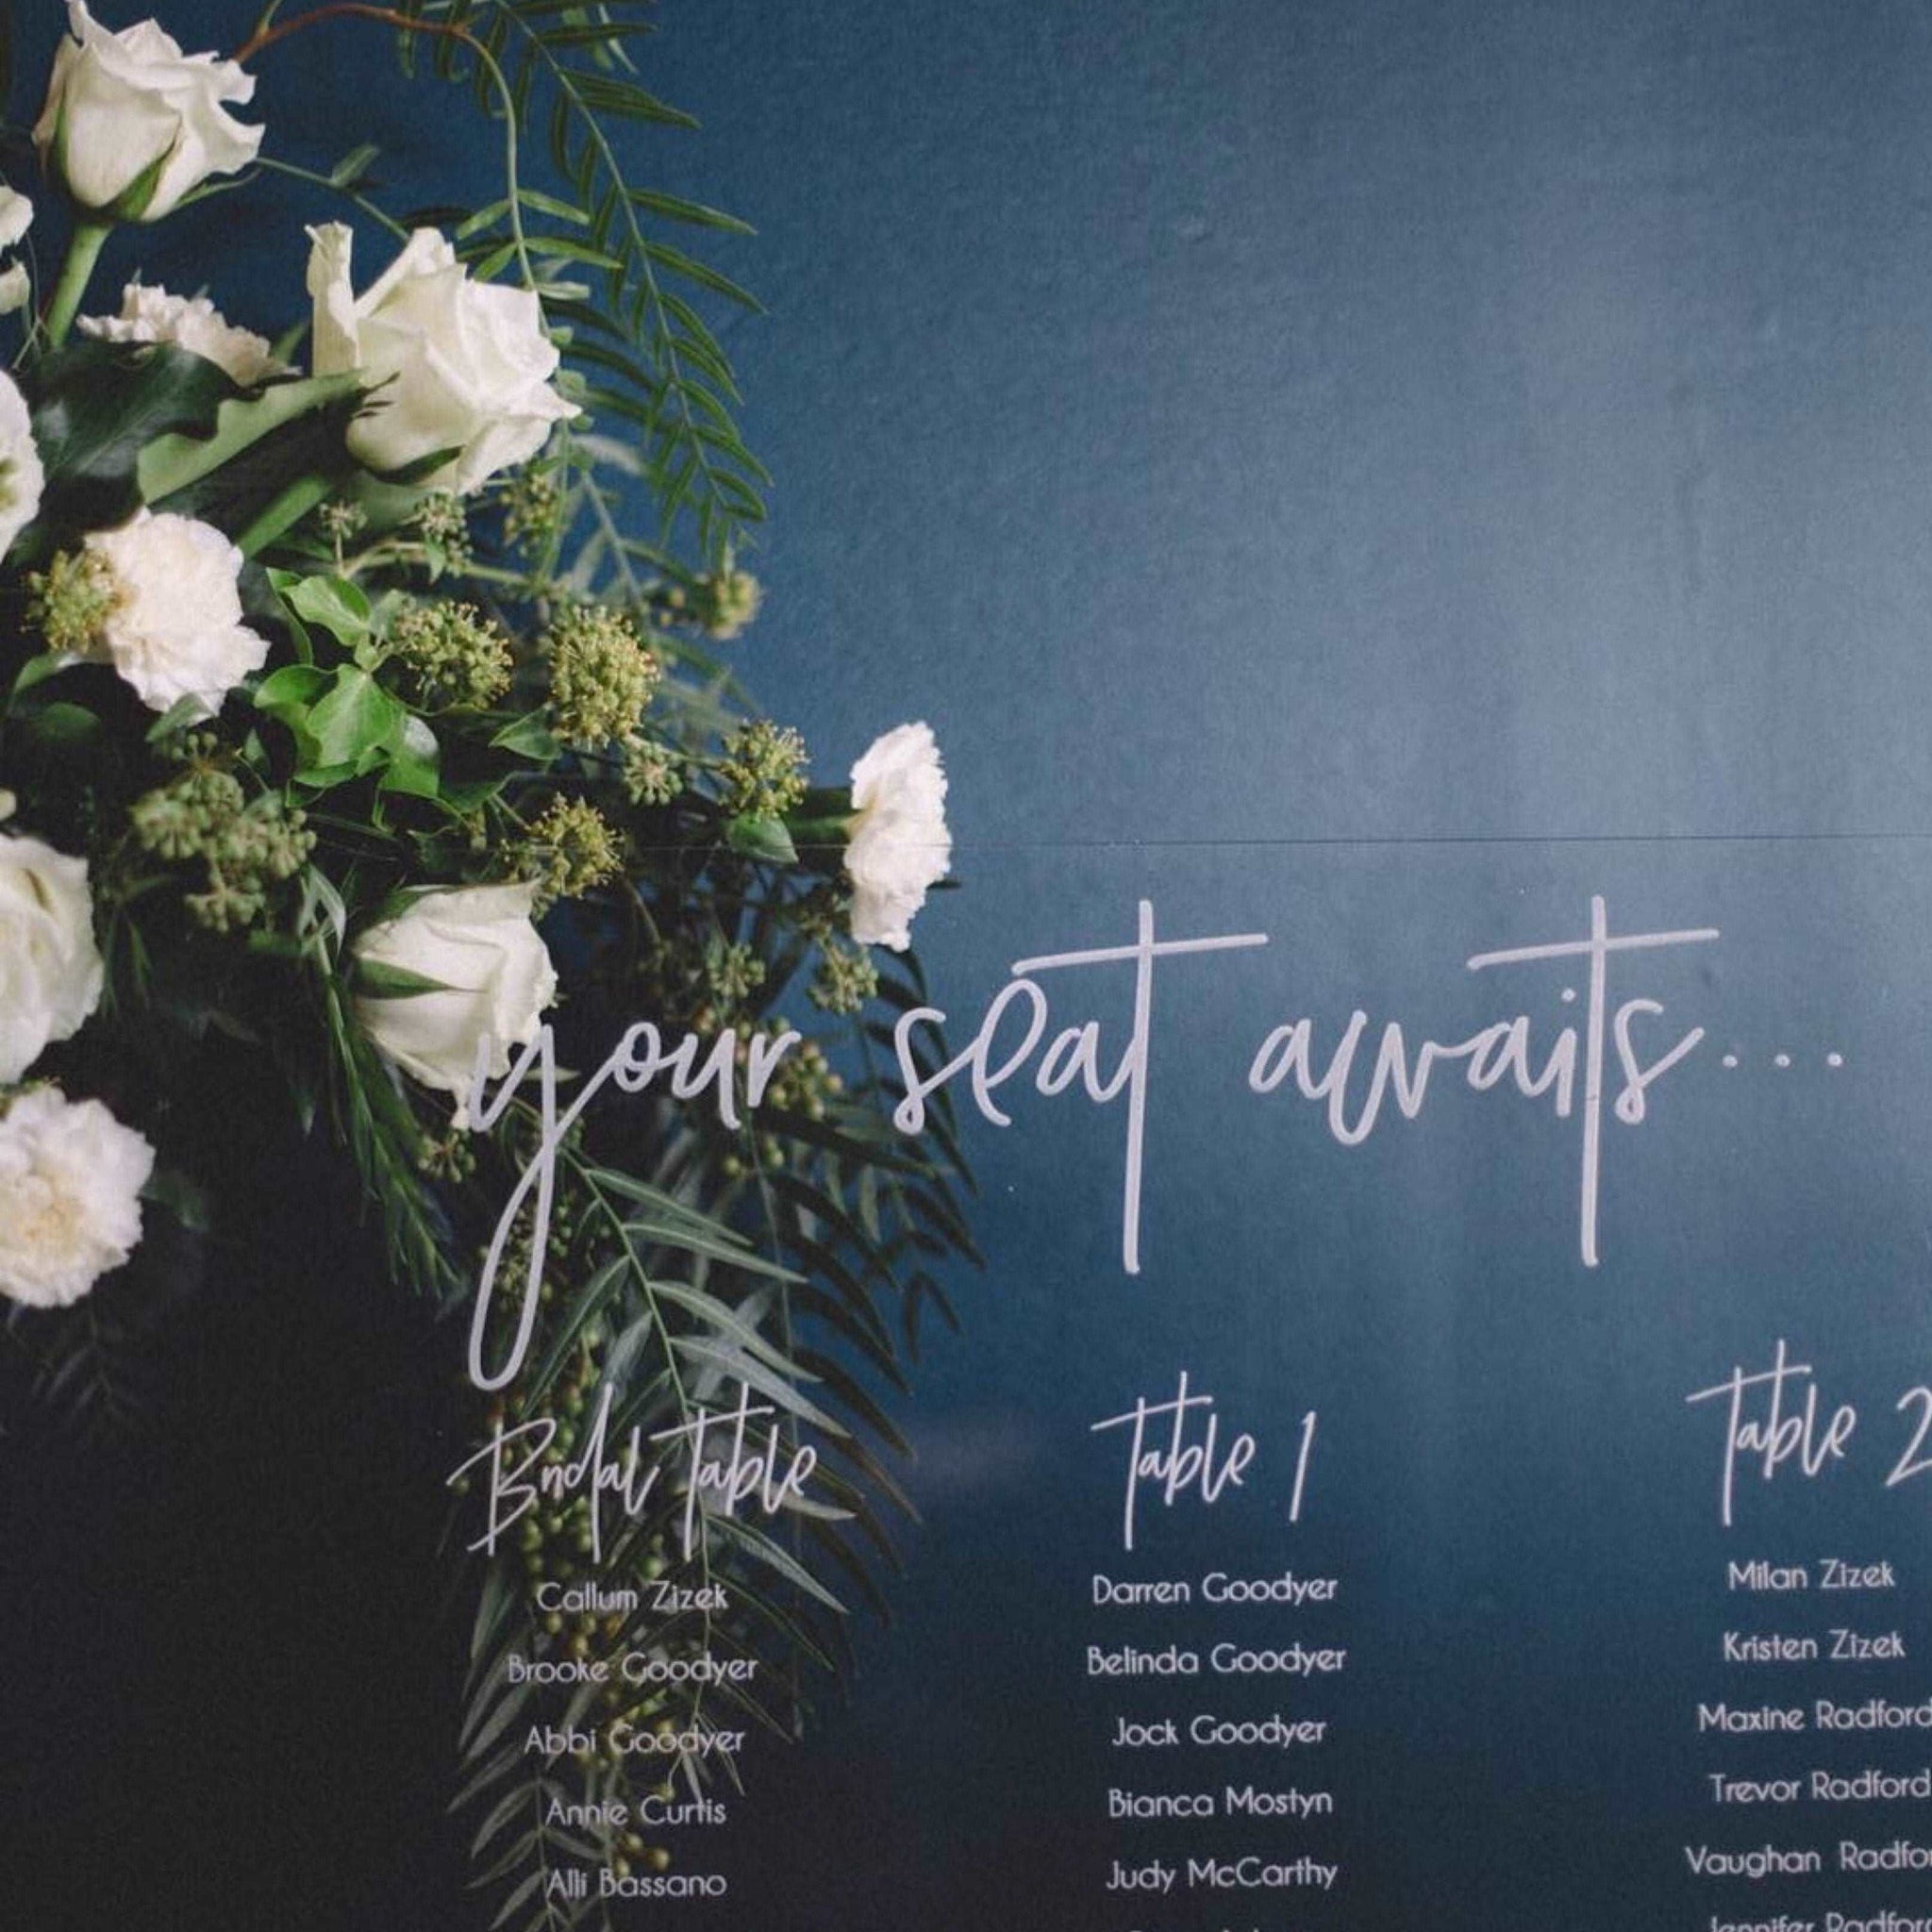 your seat awaits...
Bridal Table
Callum Zizek
Brooke Goodyer
Abbi Goodyer
Annie Curtis
Alli Bassano
Table 1
Darren Goodyer
Belinda Goodyer
Jock Goodyer
Bianca Mostyn
Judy McCarthy
Table 2
Milan Zizek
Kristen Zizek
Maxine Radford
Trevor Radford
Vaughan